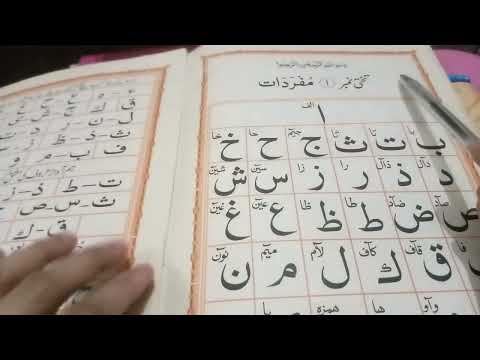 بسم الله الرحمن الرحیم
تختی نمبر (۱) مُفرَدَات
الف
ا
با تا ثا جیم حا خا
ب ت ث ج ح خ
دال ذال را زا سین شین
د ذ ر ز س ش
صاد ضاد طا ظا عین غین
ص ض ط ظ ع غ
فا قاف کاف لام میم نون
ق ك ل م ن
واو ها همزه یا
ل - ن - ر
ث - ظ
ف - ب - م - و
ت - ط - ذ - ز
ث - س - ص
ق - ك